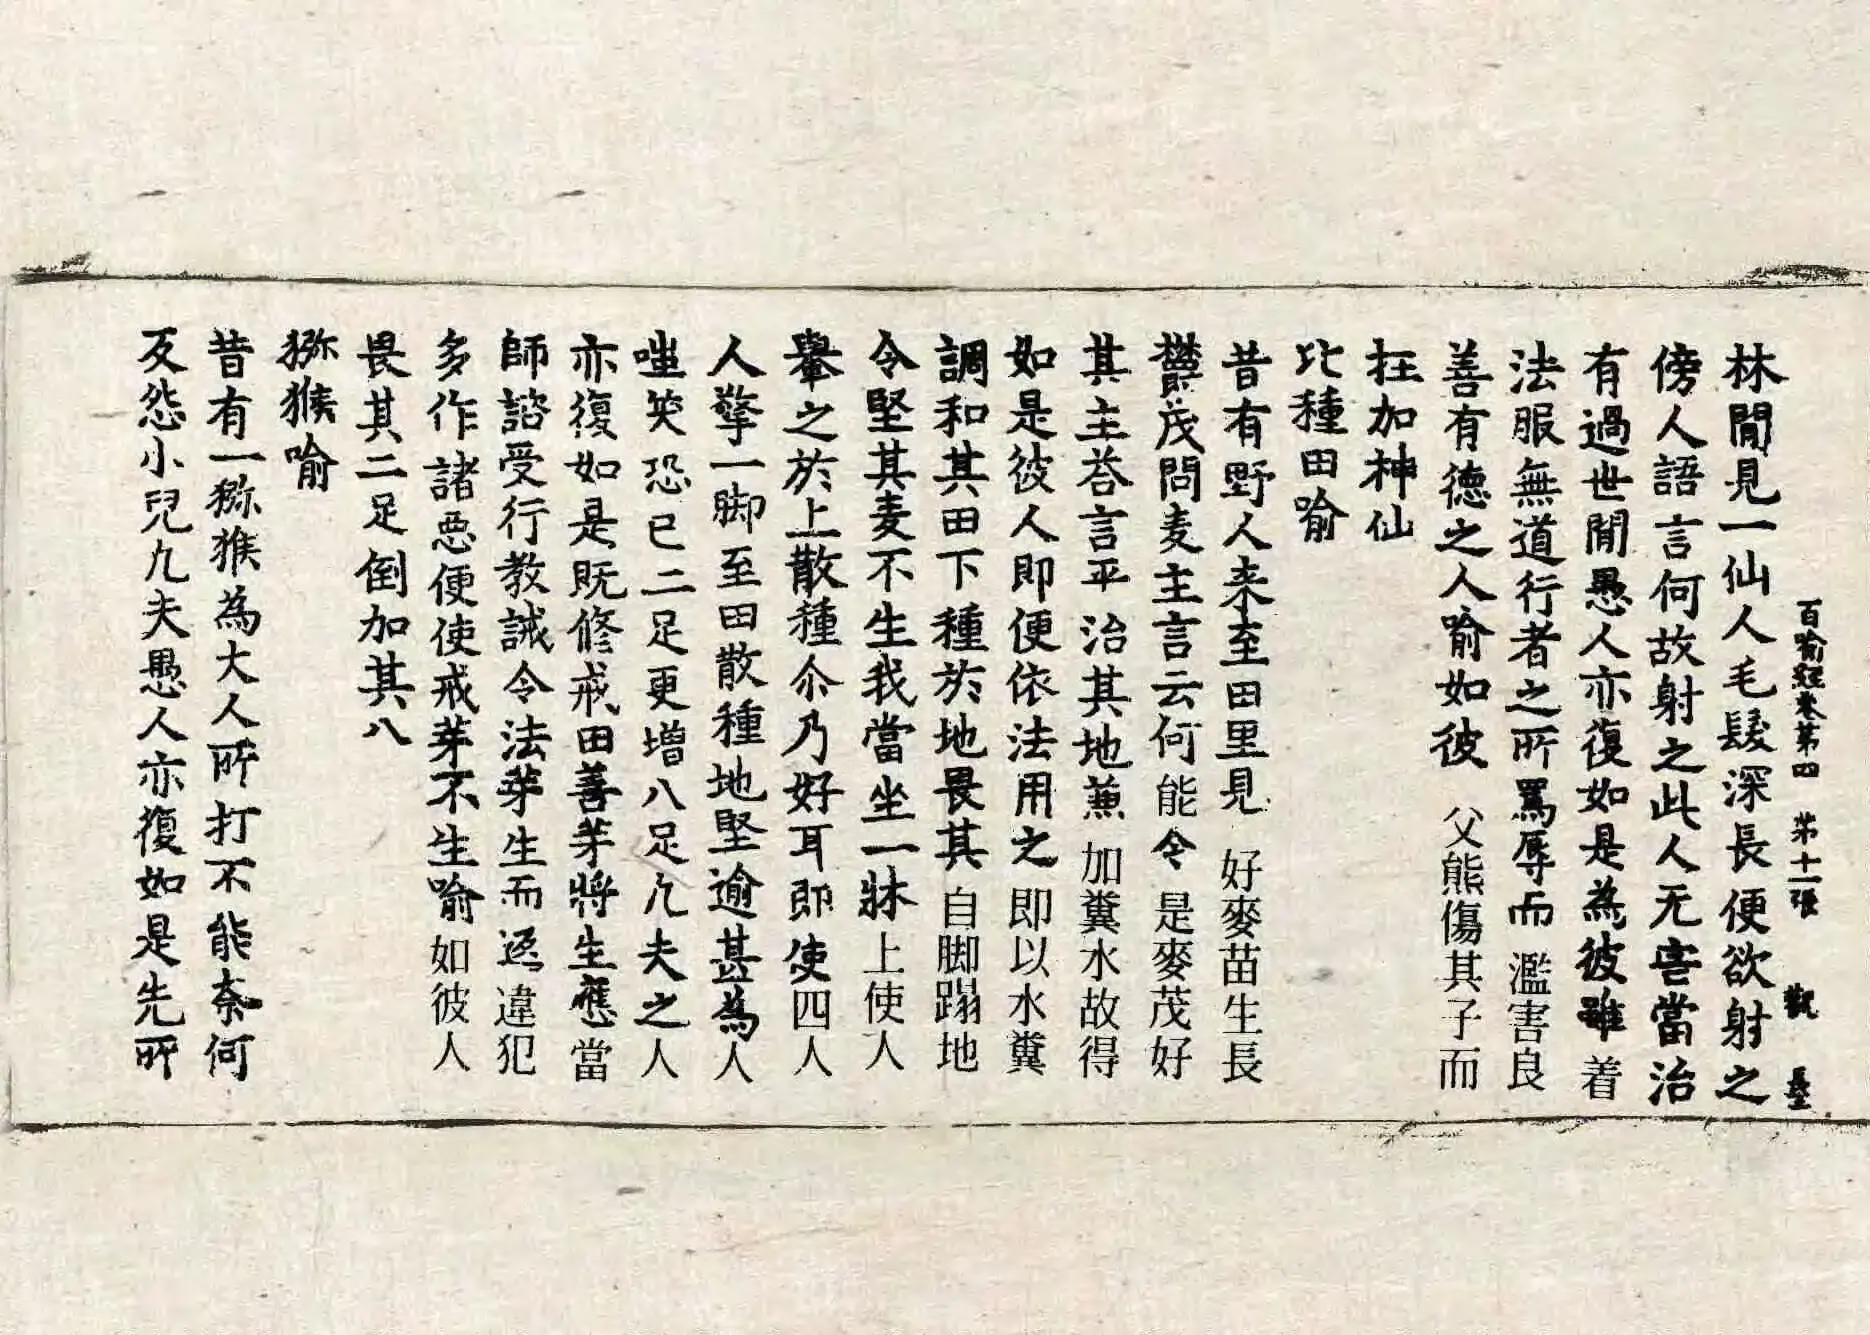 百喻經卷第四　第十一張　觀
林閒見一仙人毛髮深長便欲射之
傍人語言何故射之此人无害當治
有過世閒愚人亦復如是為彼雖着
法服無道行者之所罵辱而濫害良
善有德之人喻如彼　父熊傷其子而
枉加神仙
比種田喻
昔有野人来至田里見好麥苗生長
鬱茂問麦主言云何能令是麥茂好
其主荅言平治其地兼加糞水故得
如是彼人即便依法用之即以水糞
調和其田下種於地畏其自脚蹋地
令堅其麦不生我當坐一牀上使人
轝之於上散種尒乃好耳即使四人
人擎一脚至田散種地堅逾甚為人
嗤笑恐已二足更增八足凢夫之人
亦復如是既修戒田善芽將生應當
師諮受行教誡令法芽生而返違犯
多作諸惡便使戒芽不生喻如彼人
畏其二足倒加其八
猕猴喻
昔有一猕猴為大人所打不能奈何
反怨小兒凢夫愚人亦復如是先所